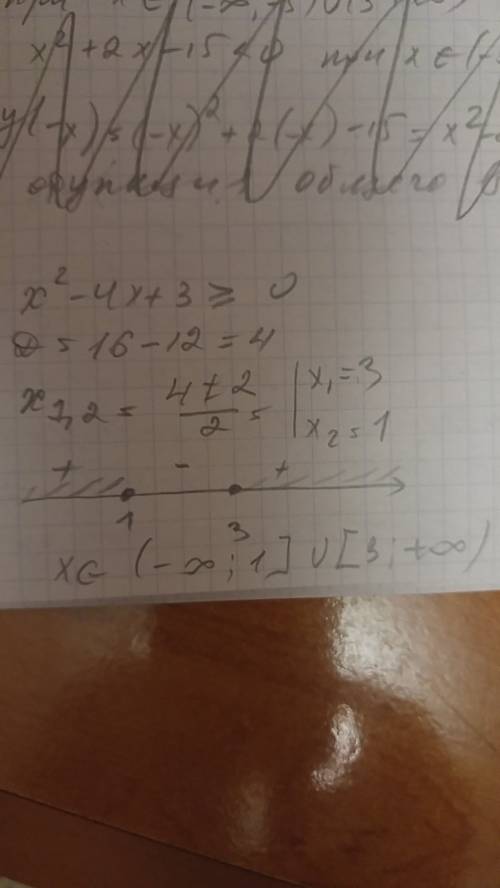 x² + 2x - 15 < 0 при x ∈ (-
y(-x) = (-x)² + 2(-x) - 15 = x² -
функция общего в
x² - 4x + 3 ≥ 0
D = 16 - 12 = 4
x₁,₂ = (4 ± 2)/2 = | x₁ = 3
x₂ = 1
+ - +
1 3
x ∈ (-∞; 1] ∪ [3; +∞)